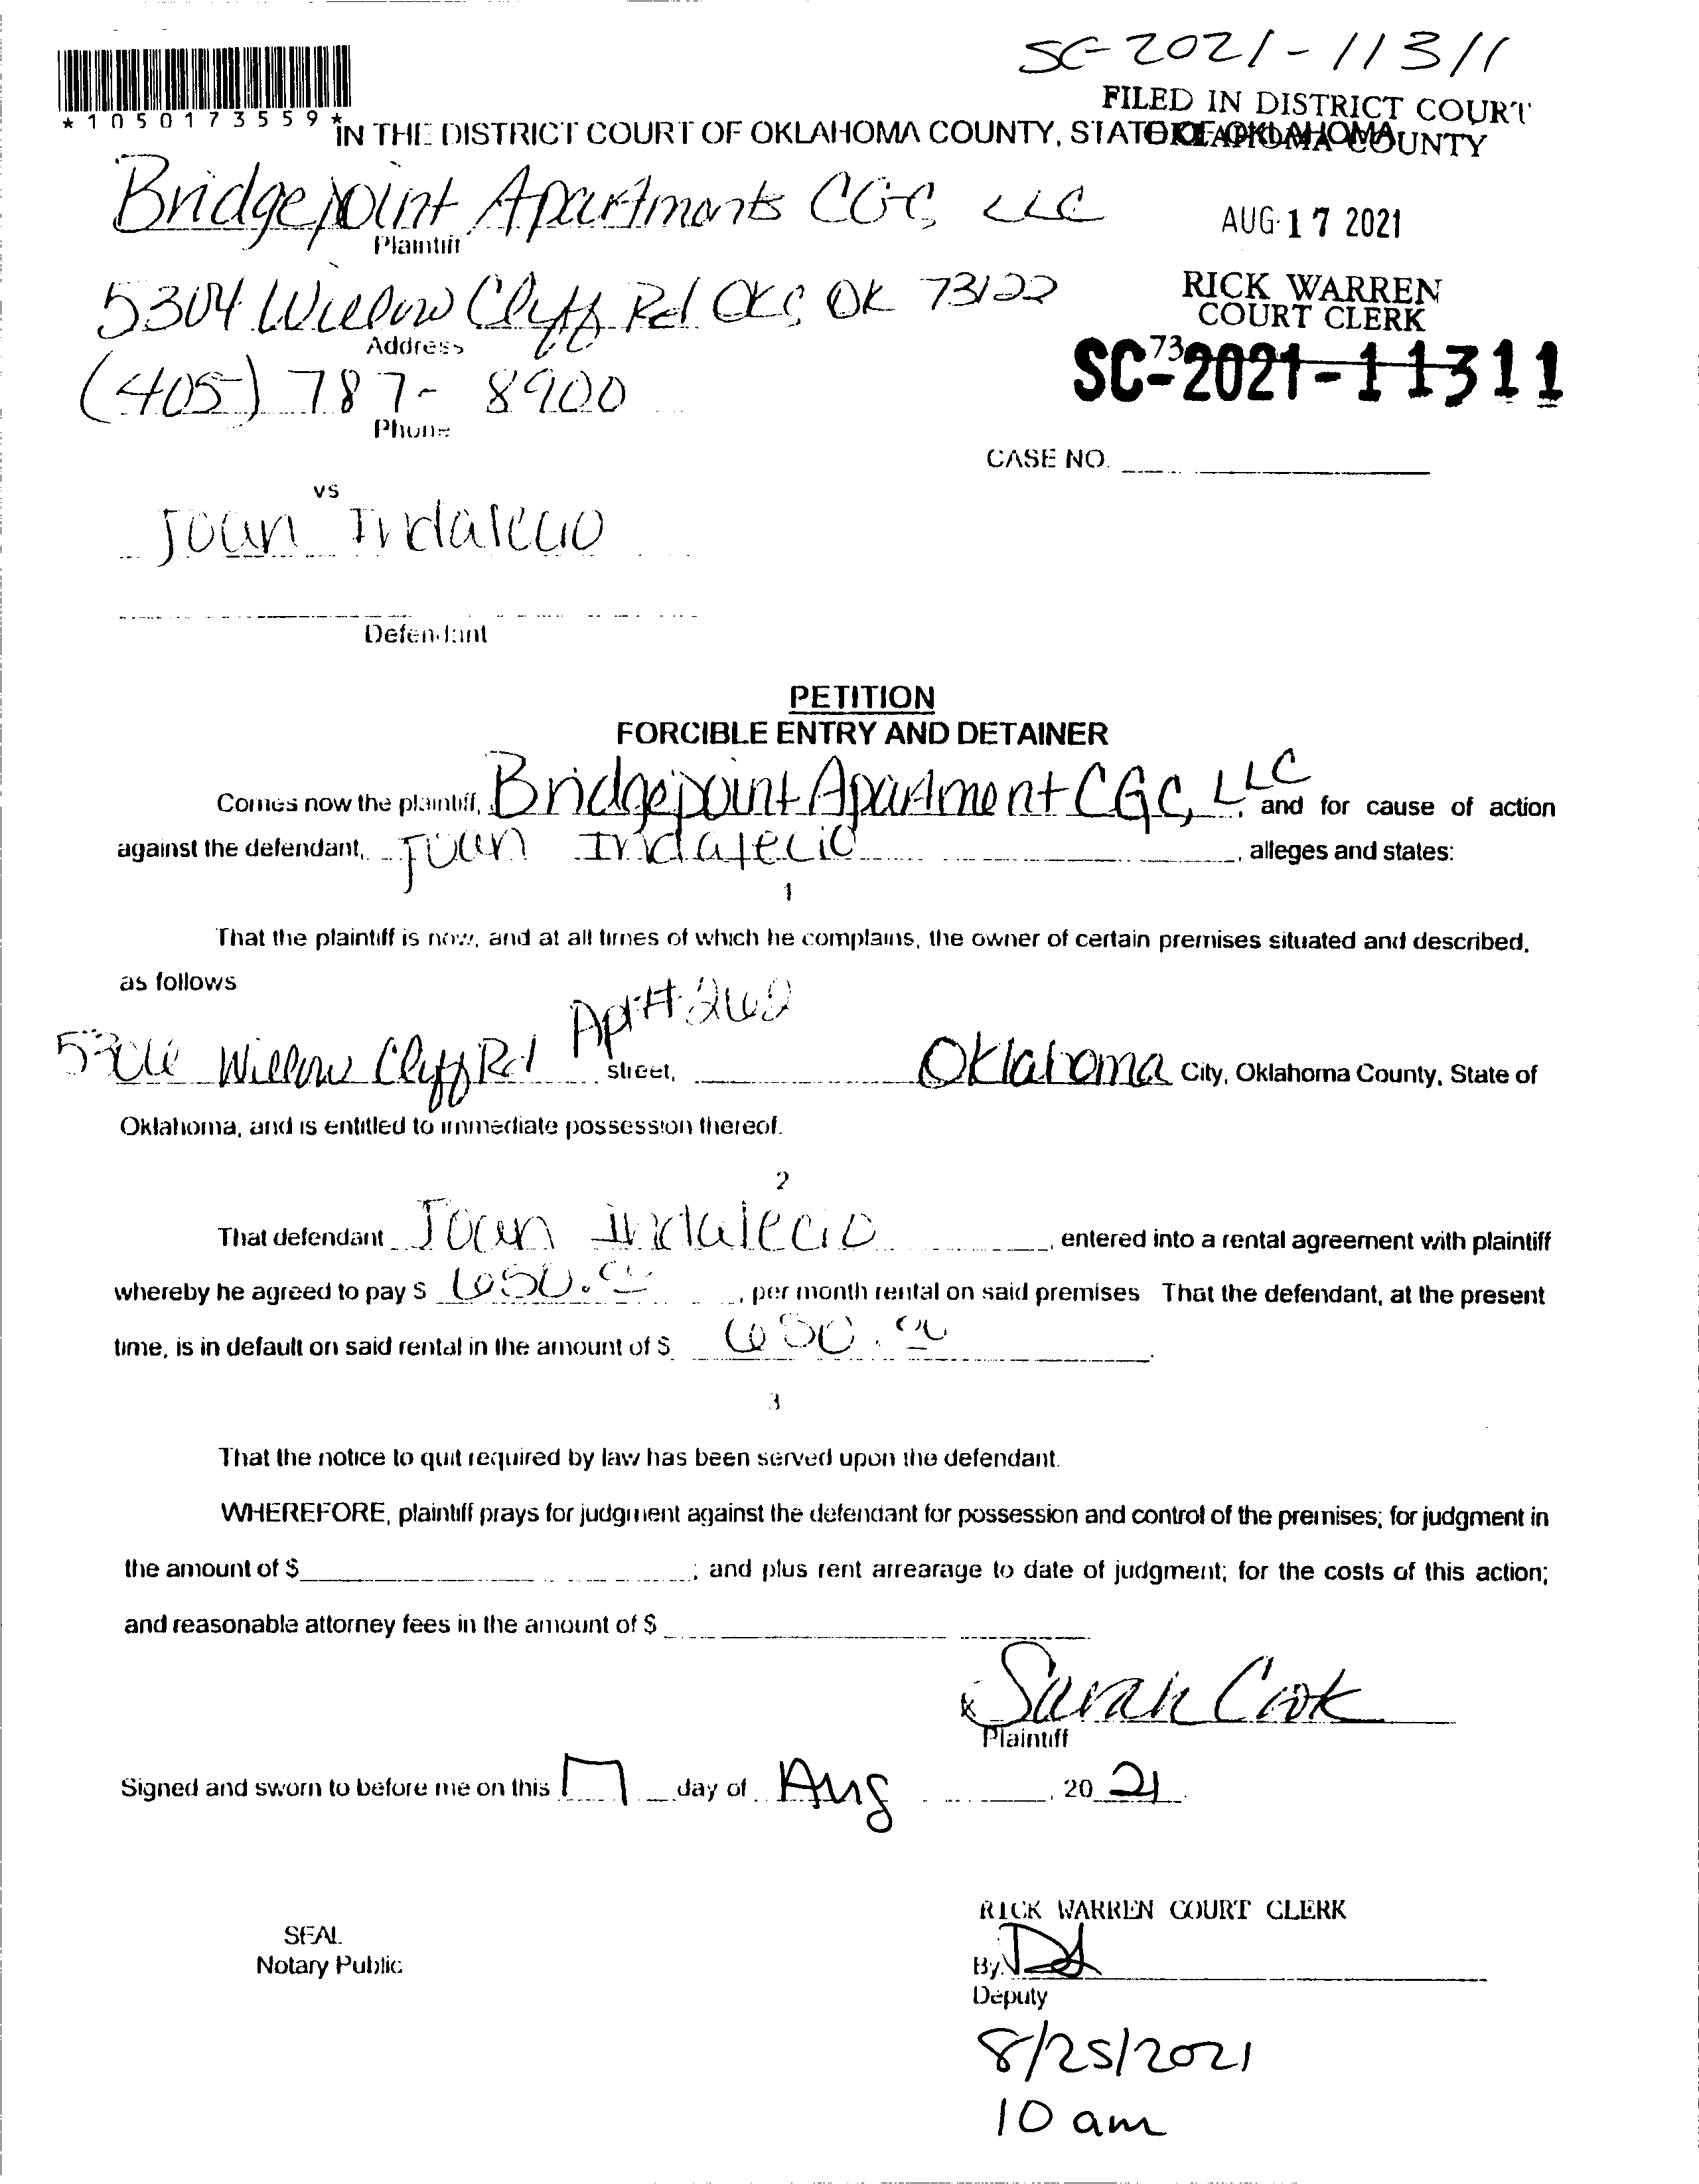 SC-2021-11311
FILED IN DISTRICT COURT
OKLAHOMA COUNTY
*1050173559*
IN THE DISTRICT COURT OF OKLAHOMA COUNTY, STATE OF OKLAHOMA
Bridgepoint Apartments CGC, LLC
Plaintiff
AUG 17 2021
5304 Willow Cliff Rd OKC, OK 73122
Address
RICK WARREN
COURT CLERK
73
SC-2021-11311
(405) 787-8900
Phone
CASE NO.
vs
Juan Indalecio
Defendant
PETITION
FORCIBLE ENTRY AND DETAINER
Comes now the plaintiff, Bridgepoint Apartment CGC, LLC, and for cause of action
against the defendant, Juan Indalecio, alleges and states:
1
That the plaintiff is now, and at all times of which he complains, the owner of certain premises situated and described,
as follows
Willow Cliff Rd Apt# street, Oklahoma City, Oklahoma County, State of
Oklahoma, and is entitled to immediate possession thereof.
2
That defendant Juan Indalecio, entered into a rental agreement with plaintiff
whereby he agreed to pay $ 650.00, per month rental on said premises That the defendant, at the present
time, is in default on said rental in the amount of $ 650.00.
3
That the notice to quit required by law has been served upon the defendant.
WHEREFORE, plaintiff prays for judgment against the defendant for possession and control of the premises; for judgment in
the amount of $; and plus rent arrearage to date of judgment; for the costs of this action;
and reasonable attorney fees in the amount of $
x Sarah Cook
Plaintiff
Signed and sworn to before me on this 17 day of Aug, 20 21.
RICK WARREN COURT CLERK
SEAL
Notary Public
By
Deputy
8/25/2021
10 am